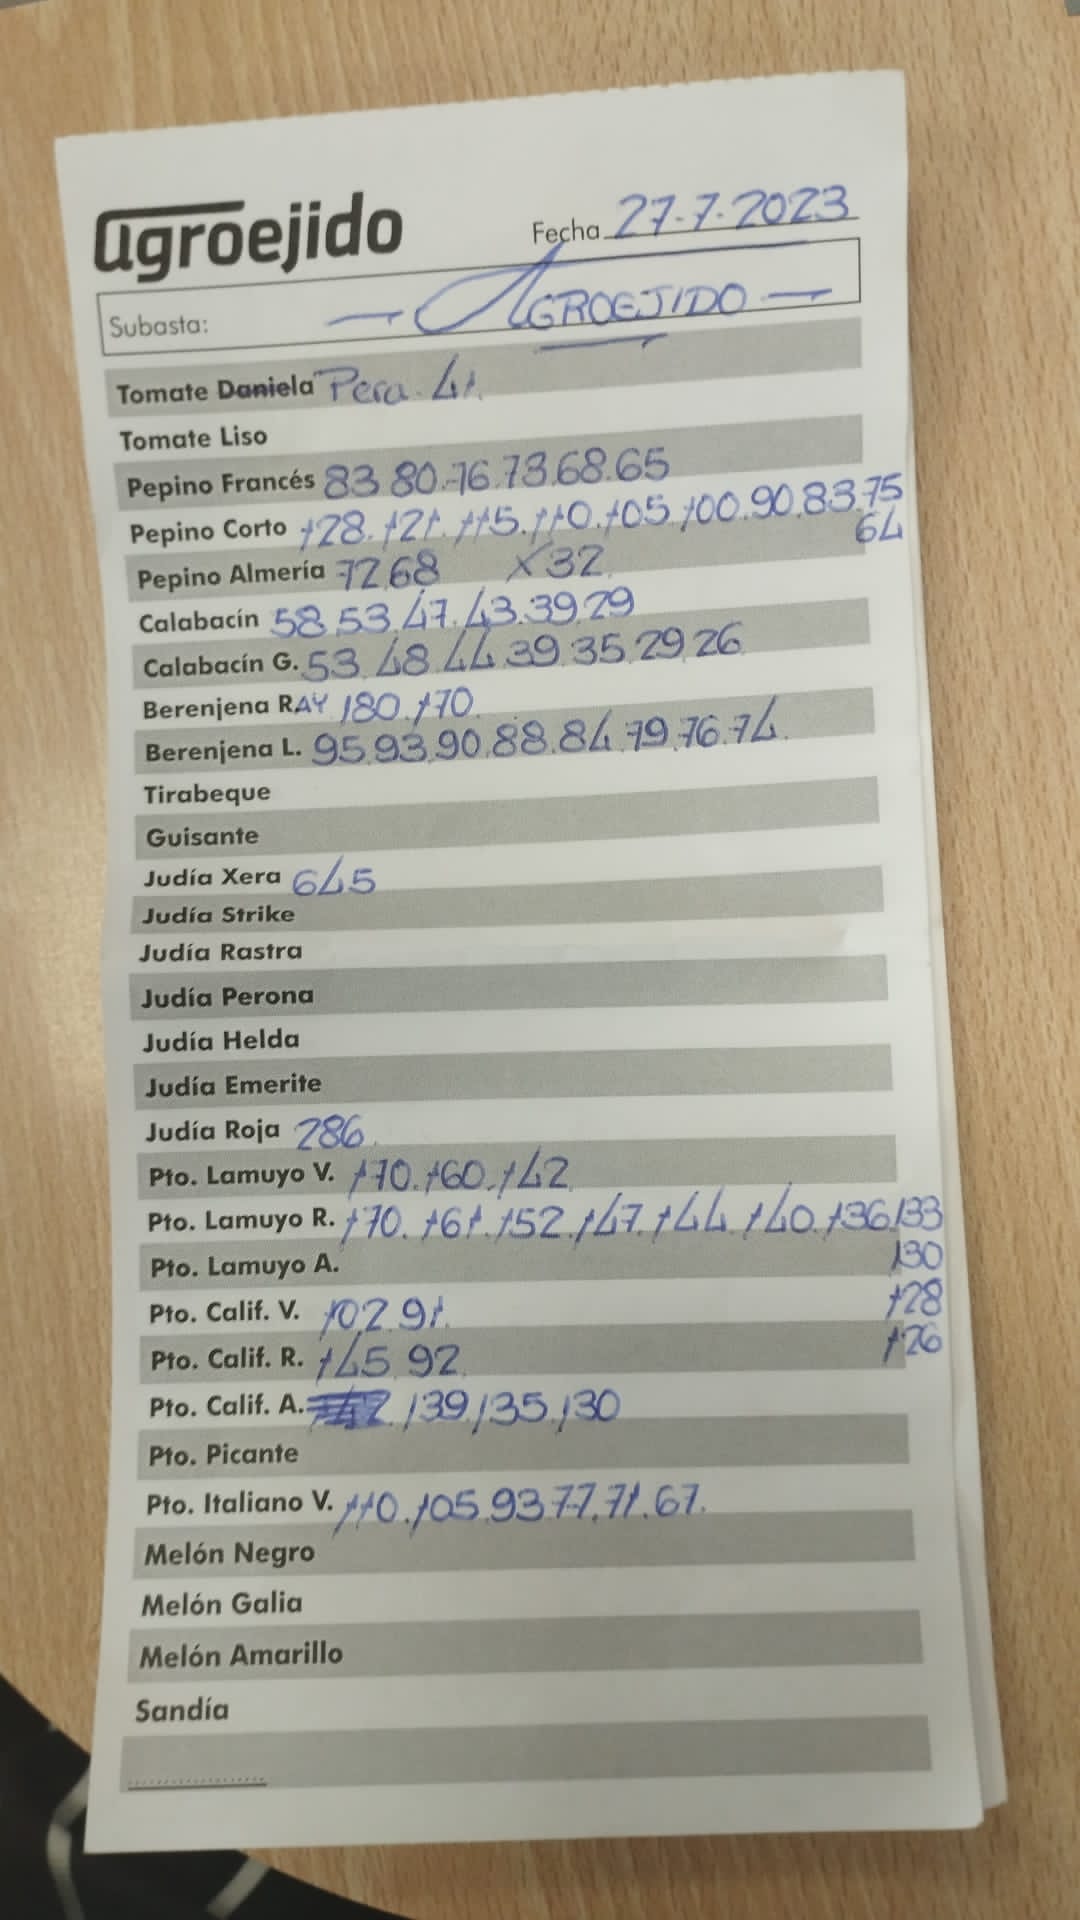 agroejido
Fecha 27-7-2023
Subasta: — AGROEJIDO —
Tomate Daniela Pera. 41.
Tomate Liso
Pepino Francés 83.80.76.73.68.65
Pepino Corto 128.121.115.110.105.100.90.83.75
64
Pepino Almería 72.68 X32
Calabacín 58.53.47.43.39.29
Calabacín G. 53.48.44.39.35.29.26
Berenjena RAY 180.170.
Berenjena L. 95.93.90.88.84.79.76.74.
Tirabeque
Guisante
Judía Xera 645
Judía Strike
Judía Rastra
Judía Perona
Judía Helda
Judía Emerite
Judía Roja 286.
Pto. Lamuyo V. 170.160.142
Pto. Lamuyo R. 170.161.152.147.144.140.136.133
130
Pto. Lamuyo A.
128
Pto. Calif. V. 102.91.
126
Pto. Calif. R. 145.92.
Pto. Calif. A. 139.135.130
Pto. Picante
Pto. Italiano V. 110.105.93.77.71.67.
Melón Negro
Melón Galia
Melón Amarillo
Sandía